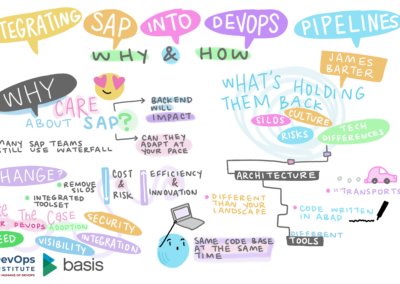 INTEGRATING SAP INTO DEVOPS PIPELINES
WHY & HOW
JAMES
BARTER
WHY
CARE
ABOUT SAP?
BACKEND
WILL
IMPACT
CAN THEY
ADAPT AT
YOUR PACE
MANY SAP TEAMS
STILL USE WATERFALL
WHAT'S HOLDING
THEM BACK
SILOS
CULTURE
RISKS
TECH
DIFFERENCES
CHANGE?
• REMOVE
SILOS
• INTEGRATED
TOOLSET
COST
&
RISK
EFFICIENCY
&
INNOVATION
The Case
DEVOPS ADOPTION
SECURITY
SPEED
VISIBILITY
INTEGRATION
ARCHITECTURE
• DIFFERENT
THAN YOUR
LANDSCAPE
• "TRANSPORTS
• CODE WRITTEN
IN ABAP
DIFFERENT
TOOLS
SAME CODE BASE
AT THE SAME
TIME
DevOps
INSTITUTE
basis